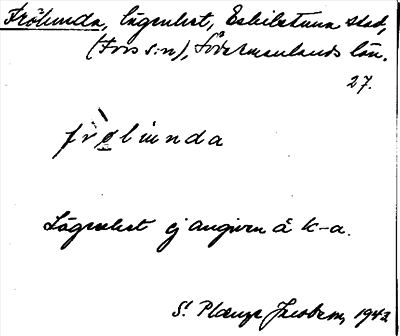 Frölunda, lägenhet, Eskilstuna stad,
(Fors s:n), Södermanlands län.
27.
frö̀lùnda
Lägenhet ej angiven å k-a.
S. Plænge Jacobson, 1942